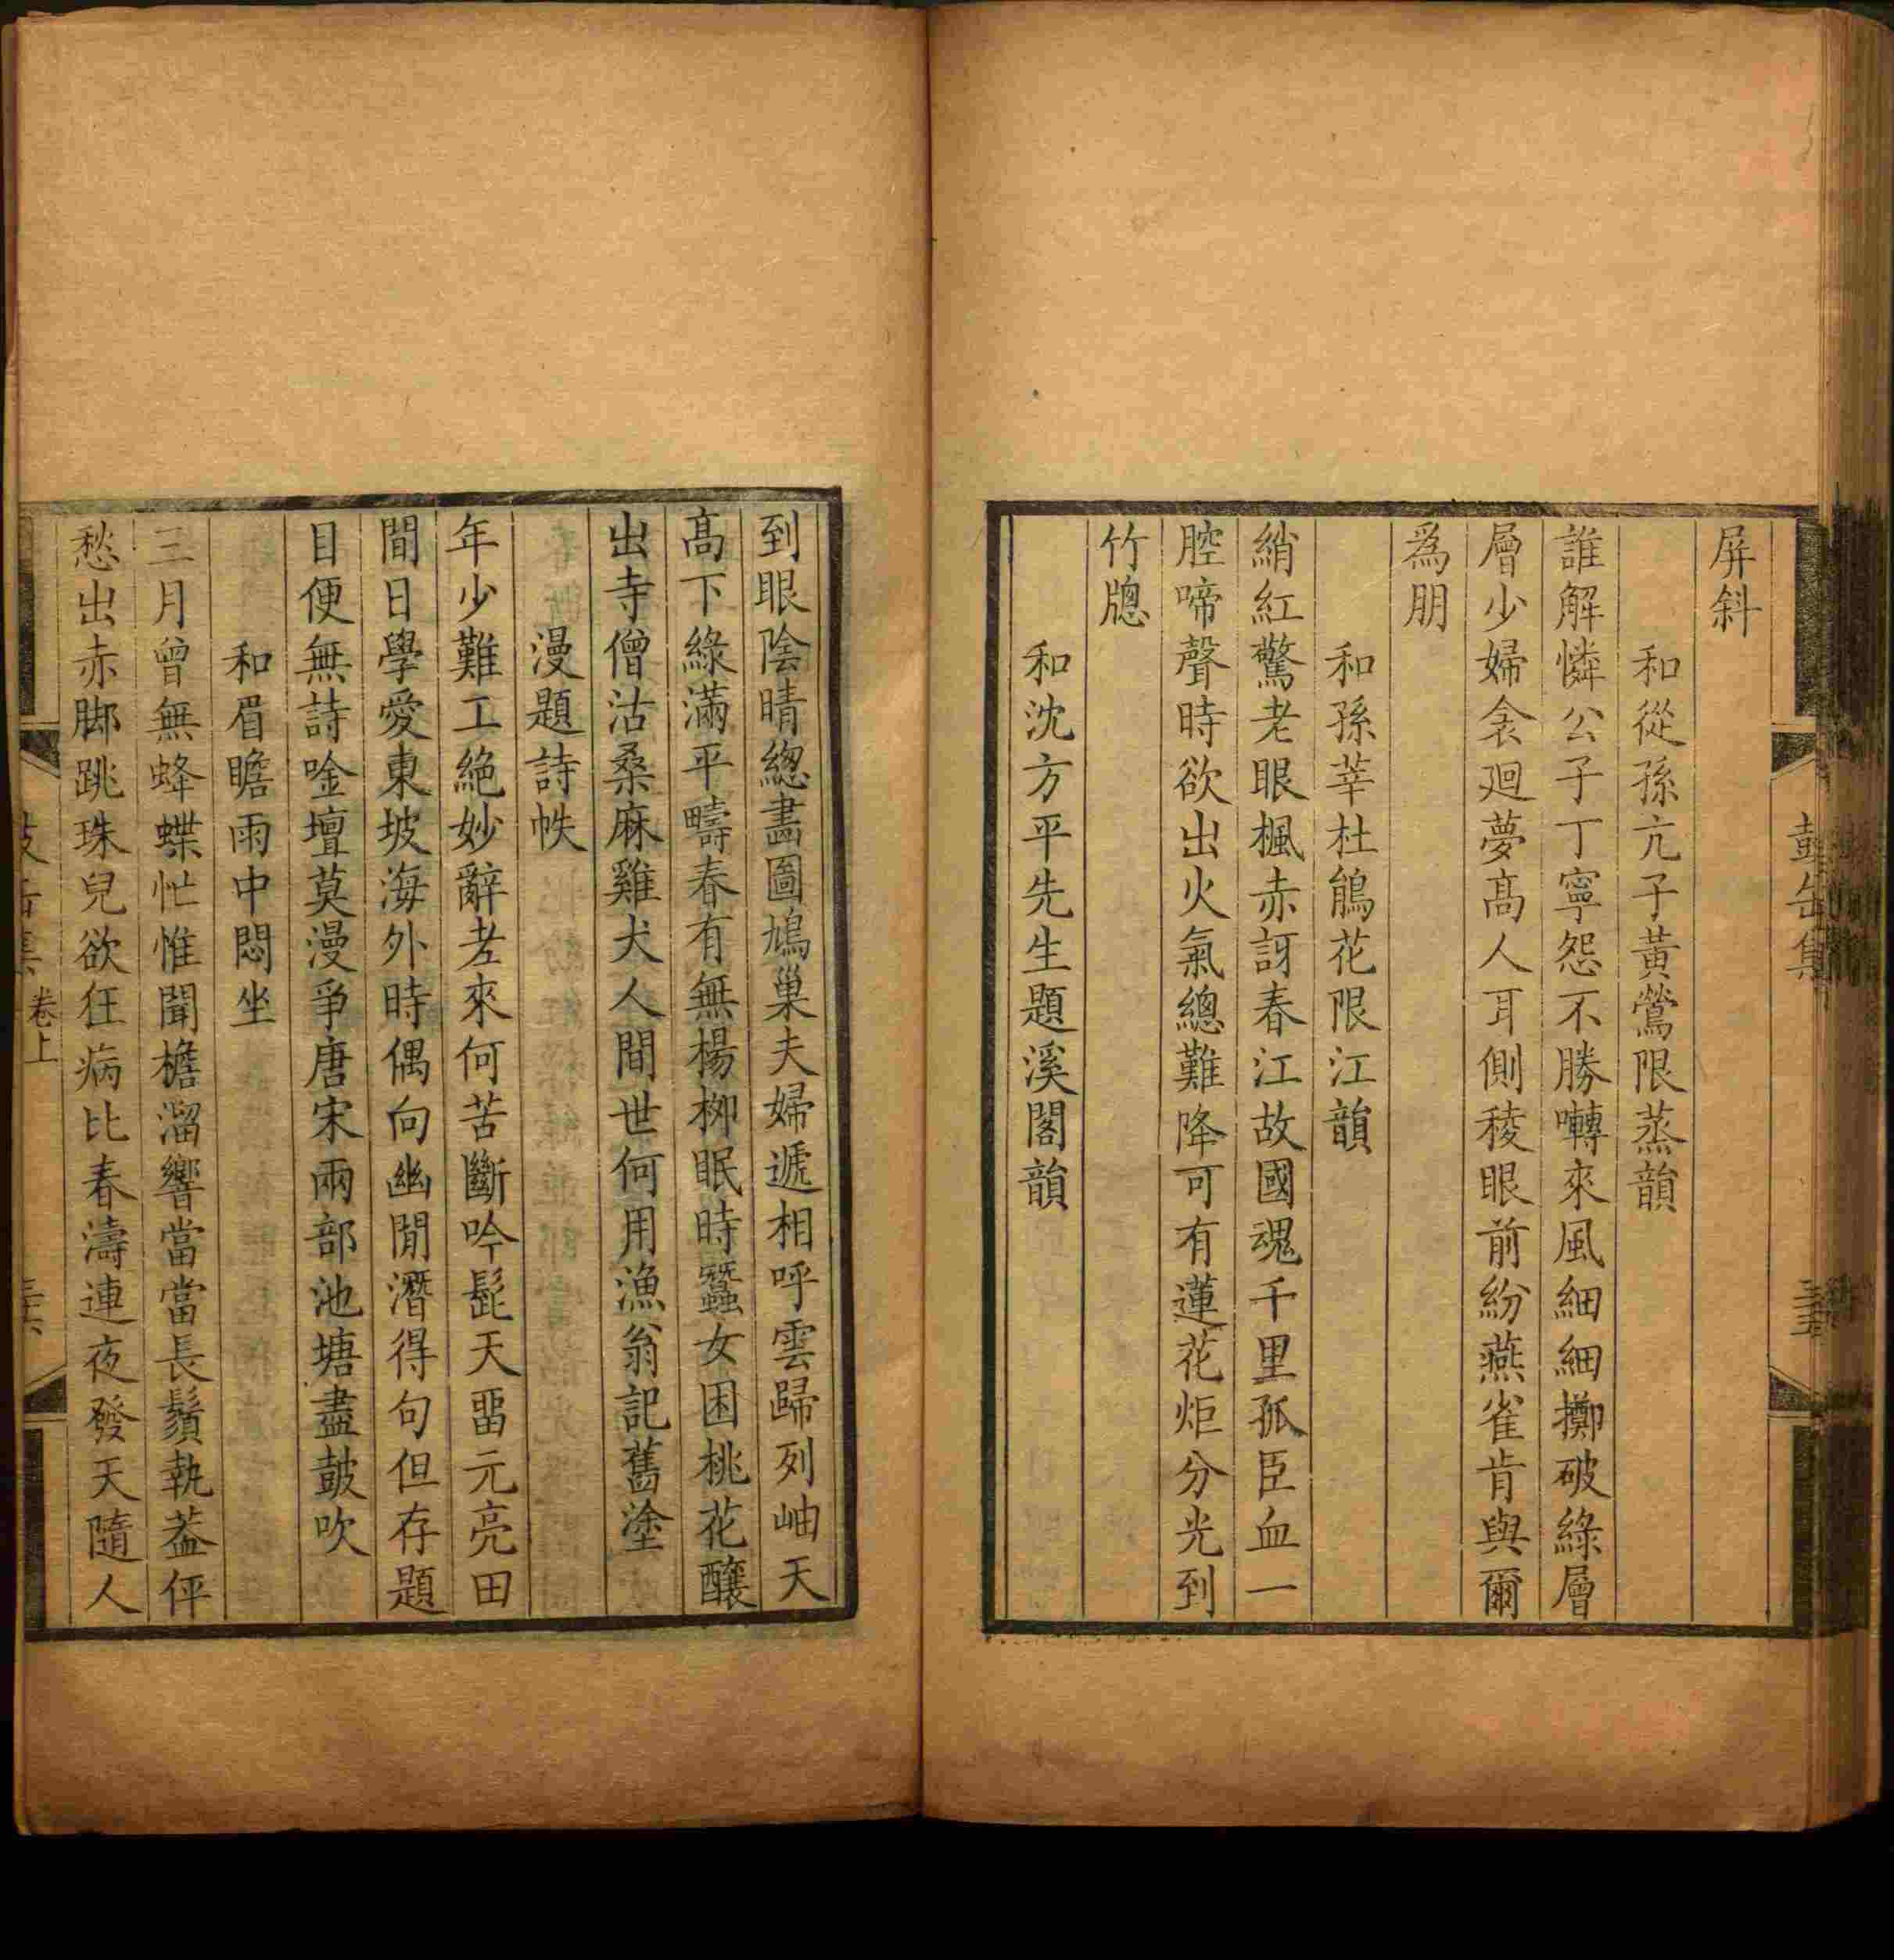 屏斜
和從孫亢子黃鶯限蒸韻
誰解憐公子丁寧怨不勝囀來風細細擲破綠層
層少婦衾廻夢高人耳側稜眼前紛燕雀肯與爾
爲朋
和孫莘杜鵑花限江韻
綃紅驚老眼楓赤訝春江故國魂千里孤臣血一
腔啼聲時欲出火氣總難降可有蓮花炬分光到
竹牕
和沈方平先生題溪閣韻
到眼陰晴總畵圖鳩巢夫婦遞相呼雲歸列岫天
高下綠滿平疇春有無楊柳眠時蠶女困桃花釀
出寺僧沽桑麻雞犬人間世何用漁翁記舊塗
漫題詩帙
年少難工絕妙辭老來何苦斷吟髭天畱元亮田
間日學愛東坡海外時偶向幽閒潛得句但存題
目便無詩唫壇莫漫爭唐宋兩部池塘盡鼓吹
和眉瞻雨中悶坐
三月曾無蜂蝶忙惟聞檐溜響當當長鬚執蓋伻
愁出赤脚跳珠兒欲狂病比春濤連夜發天隨人
卷上